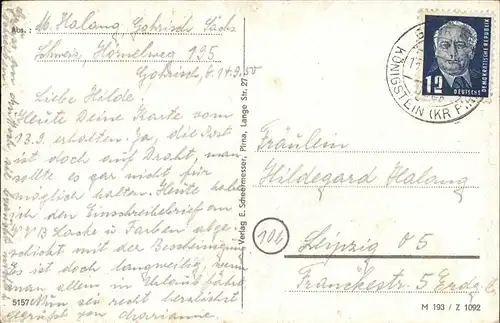 Abs.: M. Halang Gohrisch Sächs
Schweiz, Hörnelweg 195
Gohrisch, d. 14.9.50
Liebe Hilde!
Heute Deine Karte vom
13.9. erhalten. Ja, die Post
ist doch auf Draht, man
sollte es gar nicht für
möglich halten. Heute habe
ich den Einschreibebrief an
VVB Lacke u Farben abge-
schickt mit der Bescheinigung
Es ist doch langweilig, wenn
man allein in Urlaub fährt
Nun sei recht herzlichst
gegrüßt von
5157
Verlag E. Scheermesser, Pirna, Lange Str. 27
12
DEUTSCHE
DEMOKRATISCHE REPUBLIK
KÖNIGSTEIN (KR PIRNA)
Fräulein
Hildegard Halang
101
Leipzig O5
Franckestr. 5 Erdg.
M 193 / Z 1092